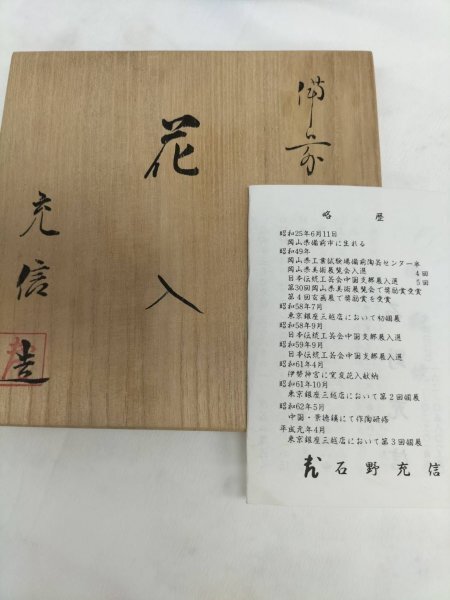 備前
花入
充信
造
略歴
昭和25年6月11日
岡山県備前市に生れる
昭和49年
岡山県工業試験場備前陶芸センター卒
岡山県美術展覧会入選 4回
日本伝統工芸会中国支部展入選 5回
第30回岡山県美術展覧会で奨励賞受賞
第4回玄画展で奨励賞を受賞
昭和58年7月
東京銀座三越店において初個展
昭和58年9月
日本伝統工芸会中国支部展入選
昭和59年9月
日本伝統工芸会中国支部展入選
昭和61年4月
伊勢神宮に窯変花入献納
昭和61年10月
東京銀座三越店において第2回個展
昭和62年5月
中国・景徳鎮にて作陶研修
平成元年4月
東京銀座三越店において第3回個展
石野充信